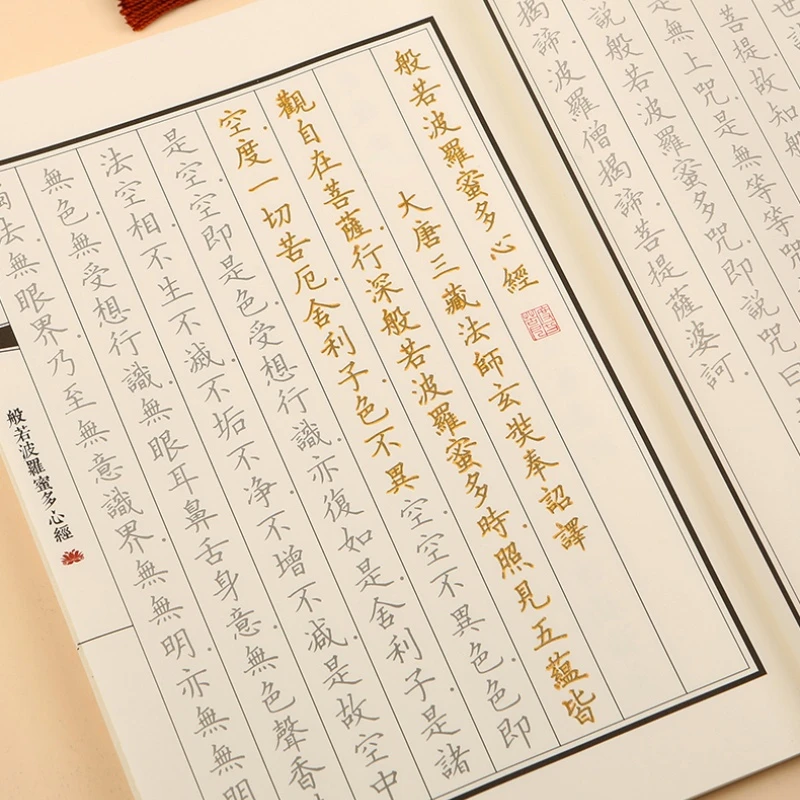 世
菩提.故知般
是無上咒.是無等等咒
説般若波羅蜜多咒.即説咒曰
揭諦.波羅僧揭諦.菩提薩婆訶.
般若波羅蜜多心經
大唐三藏法師玄奘奉詔譯
觀自在菩薩.行深般若波羅蜜多時.照見五蘊皆
空.度一切苦厄.舍利子.色不異空.空不異色.色即
是空.空即是色.受想行識.亦復如是.舍利子.是諸
法空相.不生不滅.不垢不净.不增不减.是故空中
無色.無受想行識.無眼耳鼻舌身意.無色聲香
法.無眼界.乃至無意識界.無無明.亦無無明
般若波羅蜜多心經